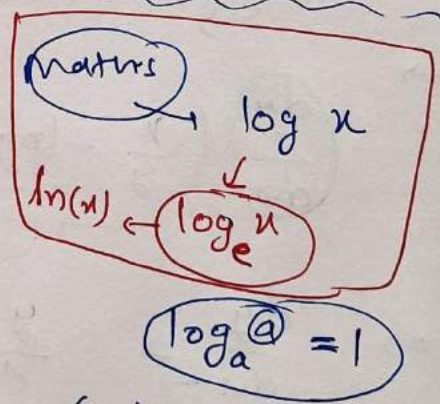 Maths
→ log x
↓
ln(x) ← log_e x
log_a a = 1